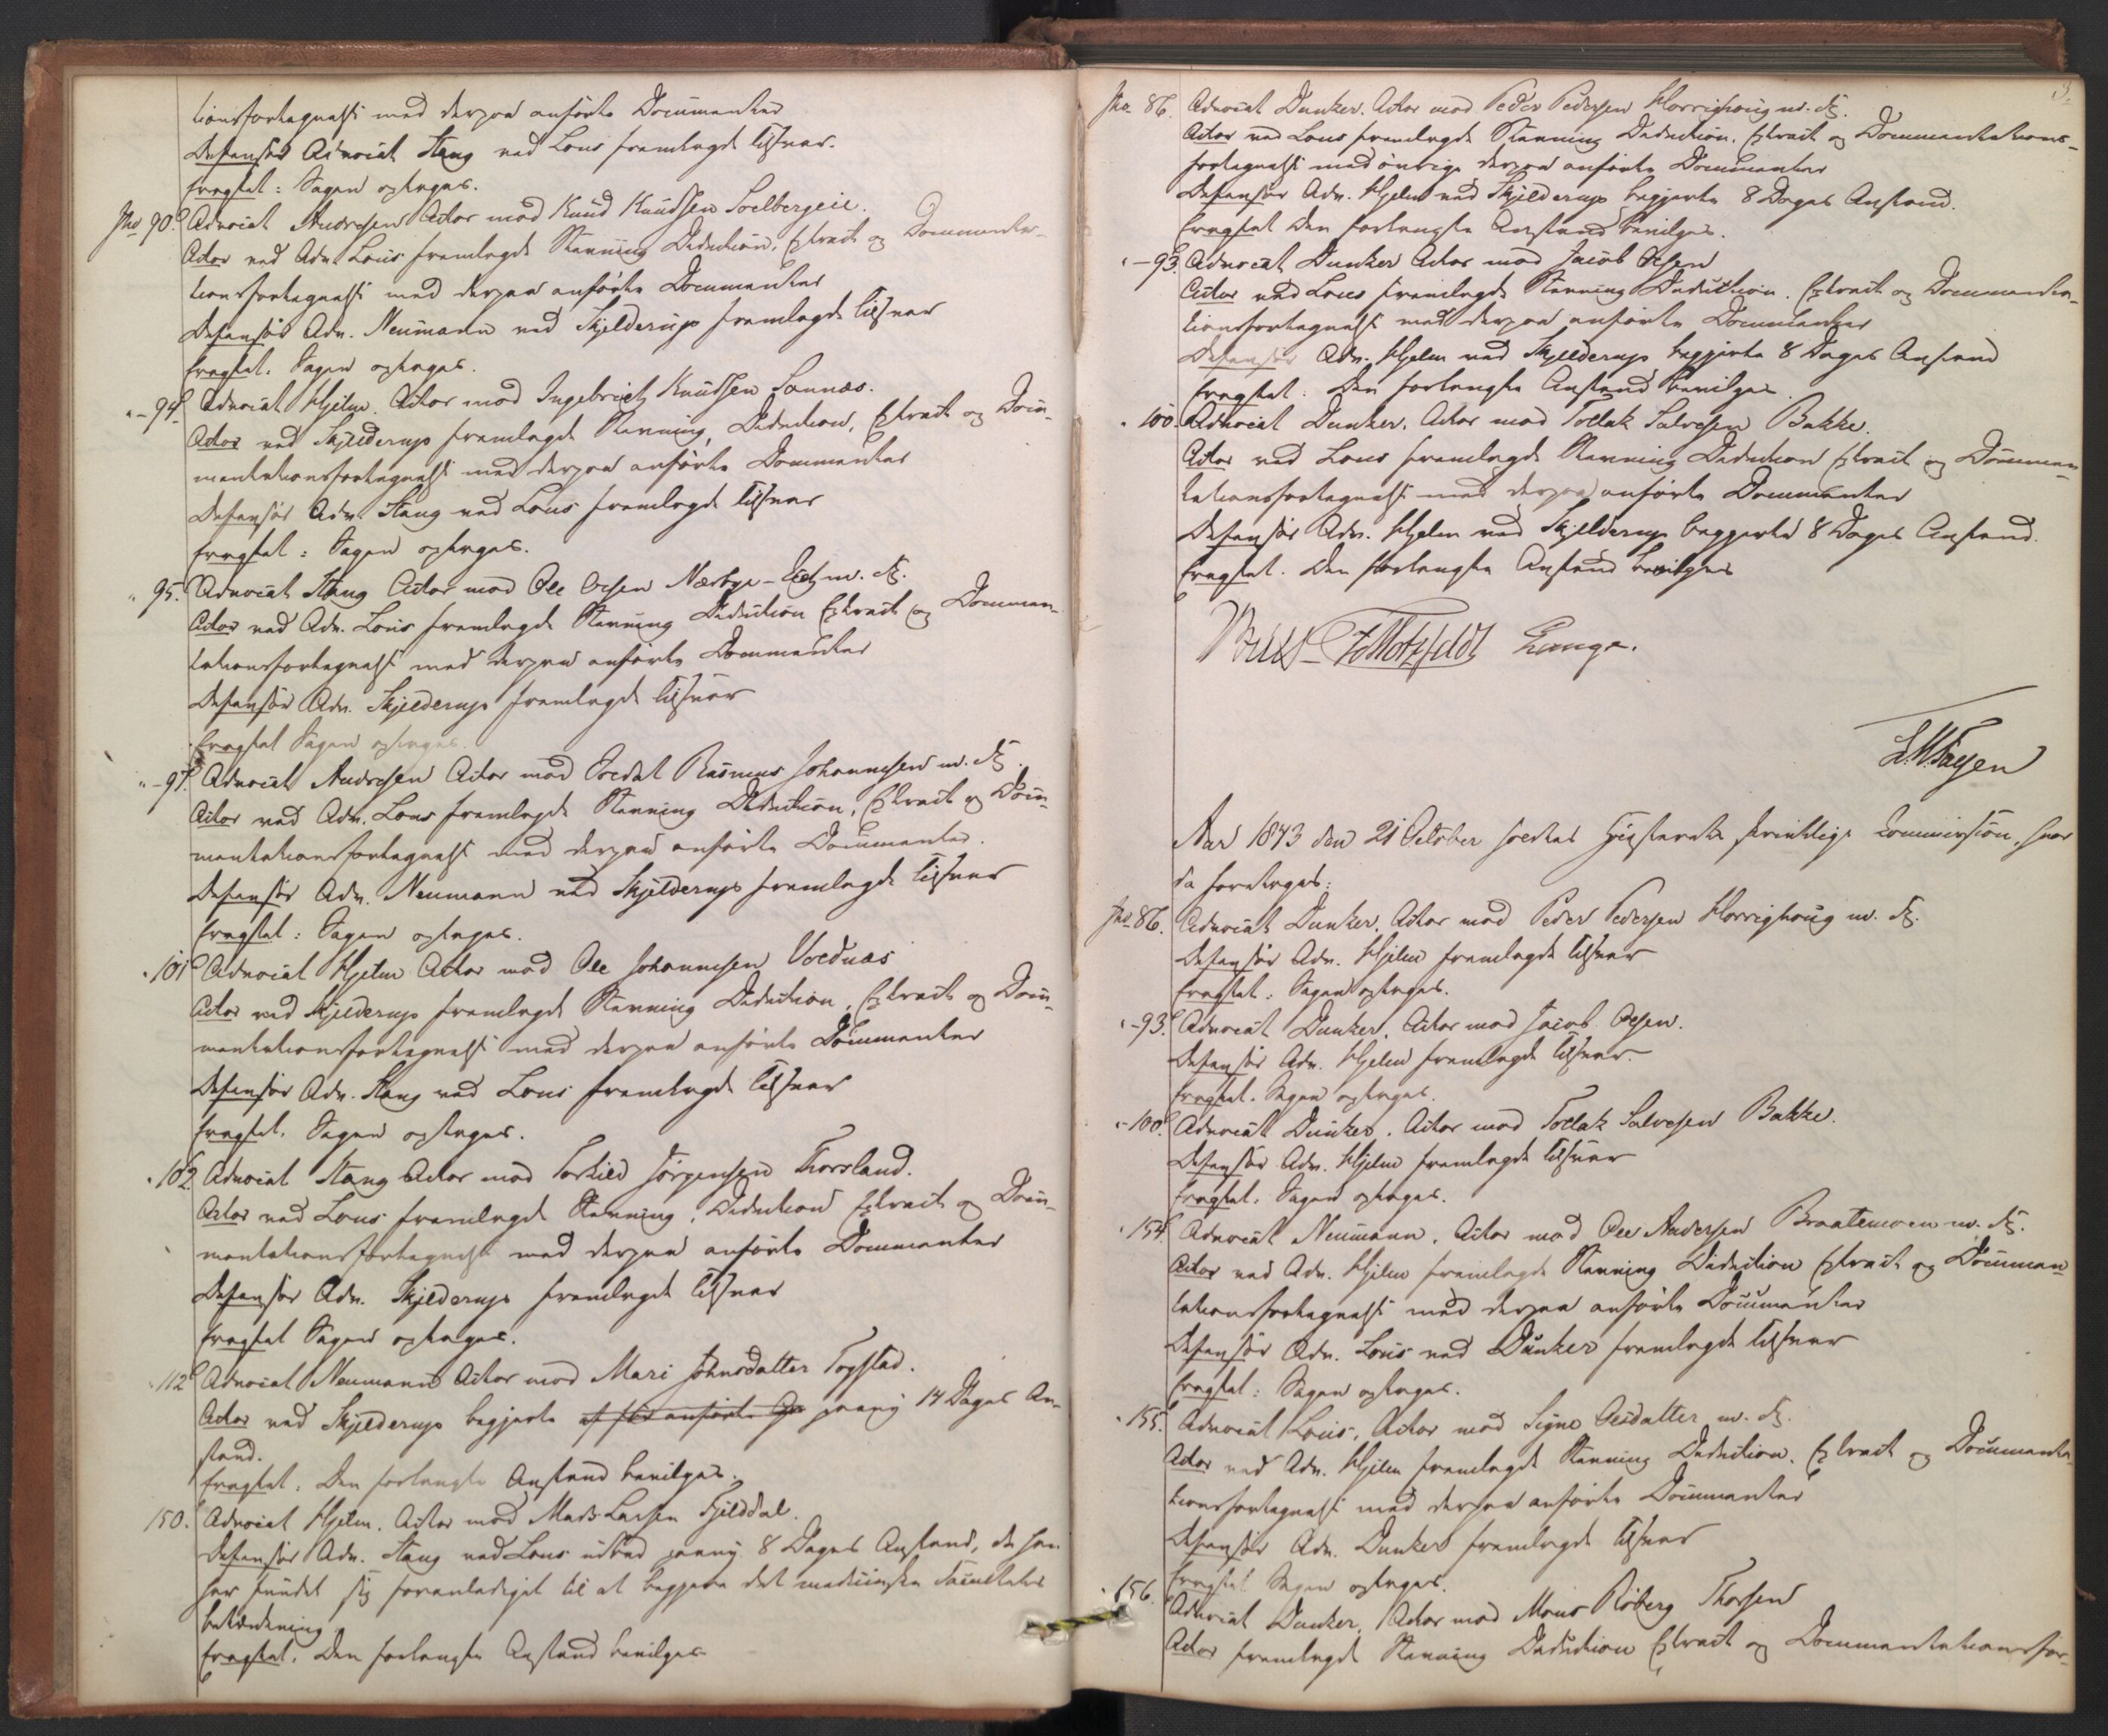 tionsfortegnelse med derpaa anførte Documenter
Defensor Advocat Stang ved Lous fremlagde Tilsvar.
Eragtet: Sagen optages.
No 90. Advocat Andresen Actor mod Knud Knudsen Solbergeie.
Actor ved Adv. Lous fremlagde Stevning Deduction, Extract og Documenta-
tionsfortegnelse med derpaa anførte Documenter
Defensor Adv. Neumann ved Skjelderup fremlagde Tilsvar
Eragtet. Sagen optages.
" - 94. Advocat Hjelm. Actor mod Ingebrigt Knudsen Sannæs.
Actor ved Skjelderup fremlagde Stevning, Deduction, Extract og Docu-
mentationsfortegnelse med derpaa anførte Documenter
Defensor Adv. Stang ved Lous fremlagde Tilsvar
Eragtet: Sagen optages.
" 95. Advocat Stang Actor mod Ole Olsen Næsbye-Eie m. fl.
Actor ved Adv. Lous fremlagde Stevning Deduction Extract og Documen-
tationsfortegnelse med derpaa anførte Documenter
Defensor Adv. Skjelderup fremlagde Tilsvar
Eragtet Sagen optages.
" - 97. Advocat Andresen Actor mod Soldat Rasmus Johannesen m. fl.
Actor ved Adv. Lous fremlagde Stevning Deduction, Extract og Docu-
mentationsfortegnelse med derpaa anførte Documenter.
Defensor Adv. Neumann ved Skjelderup fremlagde Tilsvar
Eragtet: Sagen optages.
" 101 Advocat Hjelm Actor mod Ole Johannesen Voldnæs
Actor ved Skjelderup fremlagde Stevning Deduction, Extract og Docu-
mentationsfortegnelse med derpaa anførte Documenter
Defensor Adv. Stang ved Lous fremlagde Tilsvar
Eragtet. Sagen optages.
" 102. Advocat Stang Actor mod Torkild Jörgensen Thorsland.
Actor ved Lous fremlagde Stevning, Deduction Extract og Docu-
mentationsfortegnelse med derpaa anførte Documenter
Defensor Adv. Skjelderup fremlagde Tilsvar
Eragtet Sagen optages.
" 112 Advocat Neumann Actor mod Mari Johnsdatter Togstad.
Actor ved Skjelderup begjerte af her anførte paany 14 Dages An-
stand.
Eragtet. Den forlangte Anstand bevilges.
150. Advocat Hjelm. Actor mod Mads Larsen Fjelddal.
Defensor Adv. Stang ved Lous udbad paany 8 Dages Anstand, da han
har fundet sig foranlediget til at begjere det medicinske Facultets
betænkning
Eragtet. Den forlangte Anstand bevilges
3.
No 86. Advocat Dunker. Actor mod Peder Pedersen Horrighoug m. fl.
Actor ved Lous fremlagde Stevning Deduction, Extract og Documentations-
fortegnelse med øvrige derpaa anførte Documenter
Defensor Adv. Hjelm ved Skjelderup begjerte 8 Dages Anstand.
Eragtet Den forlangte Anstand bevilges.
" - 93. Advocat Dunker Actor mod Jacob Olsen
Actor ved Lous fremlagde Stevning Deduction. Extract og Documenta-
tionsfortegnelse med derpaa anførte Documenter
Defensor Adv. Hjelm ved Skjelderup begjerte 8 Dages Anstand
Eragtet. Den forlangte Anstand bevilges.
" 100. Advocat Dunker. Actor mod Tollak Salvesen Bakke.
Actor ved Lous fremlagde Stevning Deduction Extract og Documen-
tationsfortegnelse med derpaa anførte Documenter
Defensor Adv. Hjelm ved Skjelderup begjerte 8 Dages Anstand.
Eragtet. Den forlangte Anstand bevilges
Motzfeldt Lange.
Aar 1843 den 21 October holdtes Høiesterets skriftlige Commission, hvor
da foretoges:
No 86. Advocat Dunker, Actor mod Peder Pedersen Horrighoug m. fl.
Defensor Adv. Hjelm fremlagde Tilsvar
Eragtet: Sagen optages.
" - 93. Advocat Dunker. Actor mod Jacob Olsen.
Defensor Adv. Hjelm fremlagde Tilsvar.
Eragtet. Sagen optages.
" - 100. Advocat Dunker. Actor mod Tollak Salvesen Bakke.
Defensor Adv. Hjelm fremlagde Tilsvar
Eragtet. Sagen optages.
" 154. Advocat Neumann. Actor mod Ole Andersen Braatemoen m. fl.
Actor ved Adv. Hjelm fremlagde Stevning Deduction Extract og Documen-
tationsfortegnelse med derpaa anførte Documenter
Defensor Adv. Lous ved Dunker fremlagde Tilsvar
Eragtet: Sagen optages.
" 155. Advocat Lous, Actor mod Signe Olsdatter m. fl.
Actor ved Adv. Hjelm fremlagde Stevning Deduction. Extract og Documenta-
tionsfortegnelse med derpaa anførte Documenter
Defensor Adv. Dunker fremlagde Tilsvar
Eragtet Sagen optages.
" 156. Advocat Dunker, Actor mod Mons Röberg Thorsen
Actor fremlagde Stevning Deduction Extract og Documentationsfor-